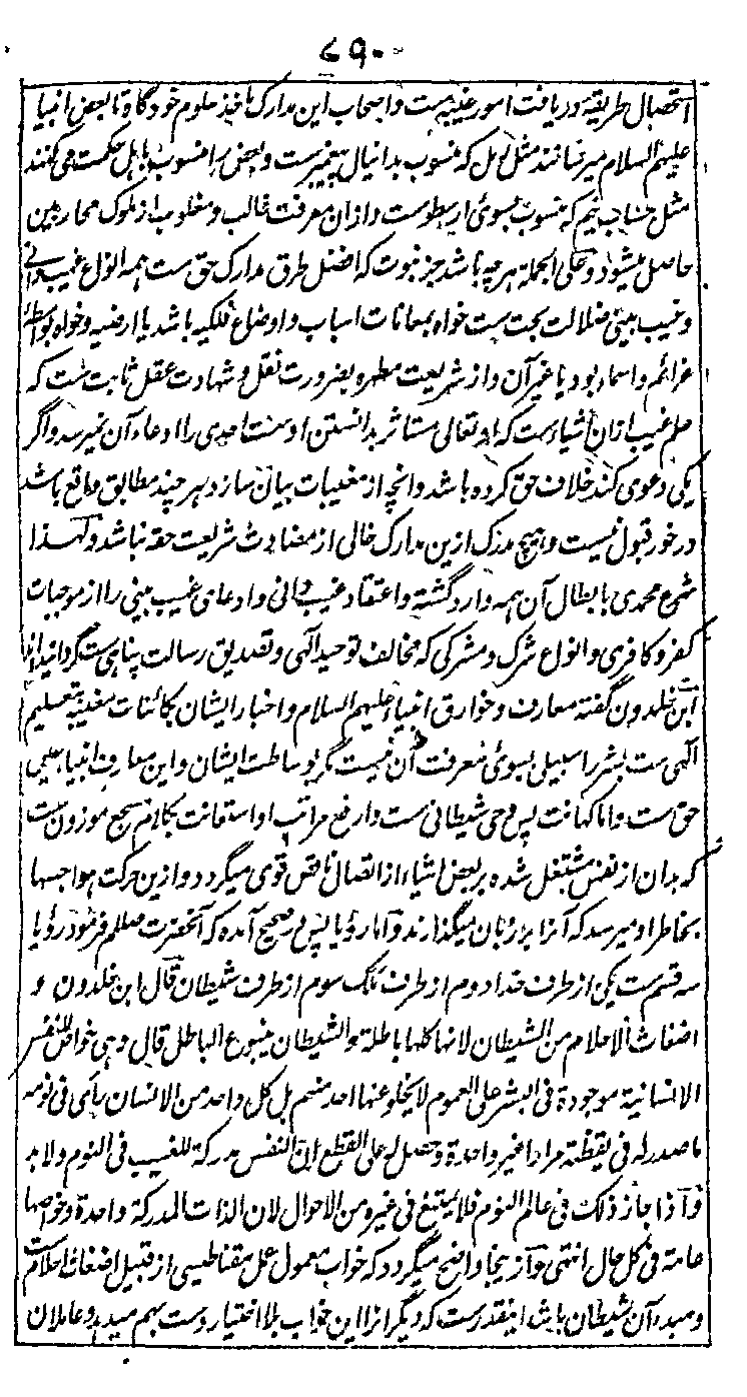 ۶۹۰
استحصال طریقهٔ دریافت امور غیبیه ست و اصحاب این مدارک ماخذ علوم خود گاه تا بعض انبیا
علیهم السلام میرسانند مثل رمل که منسوب بدانیال پیغمبرست و بعض را منسوب باهل حکمت می کنند
مثل حساب نیم که منسوب بسوی ارسطوست و ازان معرفت غالب و مغلوب از ملوک محاربین
حاصل میشود و علی الجمله هر چه باشد جز نبوت که افضل طرق مدارک حق ست همه انواع غیب دانی
و غیب بینی ضلالت بحت ست خواه بمعانات اسباب و اوضاع فلکیه باشد یا ارضیه و خواه بواسطهٔ
عزائم و اسماء بود یا غیر آن و از شریعت مطهره بضرورت نقل و شهادت عقل ثابت ست که
علم غیب ازان اشیاءست که او تعالی مستاثر بدانستن اوست احدی را ادعاء آن نمیرسد و اگر
یکی دعوی کند خلاف حق کرده باشد و انچه از مغیبات بیان سازد هر چند مطابق واقع باشد
در خور قبول نیست و هیچ مدرک ازین مدارک خالی از مضادت شریعت حقه نباشد و لهذا
شرع محمدی بابطال آن همه وارد گشته و اعتقاد غیب دانی و ادعای غیب بینی را از موجبات
کفر و کافری و انواع شرک و مشرکی که مخالف توحید الهی و تصدیق رسالت پناهی ست گردانیده
ابن خلدون گفته معارف و خوارق انبیاء علیهم السلام و اخبار ایشان بکائنات مغیبه بتعلیم
الهی ست بشر را سبیلی بسوی معرفت آن نیست مگر بوساطت ایشان و این معارف انبیا همگی
حق ست و اما کهانت پس وحی شیطانی ست و ارفع مراتب او استعانت بکلام مسجع موزون ست
که بدان از نفس مشتغل شده بر بعض اشیاء از اتصال ناقص قوی میگردد و ازین حرکت هواجسها
بخاطر او میرسد که آنرا بر زبان میگذارند و اما رؤیا پس در صحیح آمده که آنحضرت صللم فرمود رؤیا
سه قسم ست یکی از طرف خدا دوم از طرف ملک سوم از طرف شیطان قال ابن خلدون و
اضغاث الاحلام من الشیطان لانها کلها باطلة و الشیطان ینبوع الباطل قال و هی خواص للنفس
الانسانیة موجودة فی البشر علی العموم لا یخلو عنها احد منهم بل کل واحد من الانسان رأی فی نومه
ما صدر له فی یقظته مرارا غیر واحدة و حصل له علی القطع ان النفس مدرکة للغیب فی النوم و لا بد
و اذا جاز ذلک فی عالم النوم فلا یمتنع فی غیره من الاحوال لان الذات المدرکة واحدة و خواصها
عامة فی کل حال انتهی و از ینجا واضح میگردد که خواب معمول عمل مقناطیسی از قبیل اضغاث احلام ست
و مبدء آن شیطان باشد اینقدر ست که دیگر انرا این خواب بلا اختیار دست بهم میدهد و عاملان